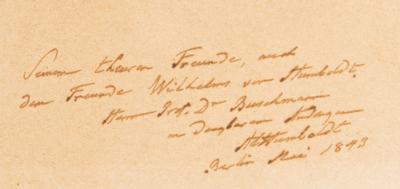 Seinem theuren Freunde, auch
dem Freunde Wilhelms von Humboldt,
Herrn Prof. Dr Buschmann
in dankbarem Andenken
AlHumboldt
Berlin Mai 1843